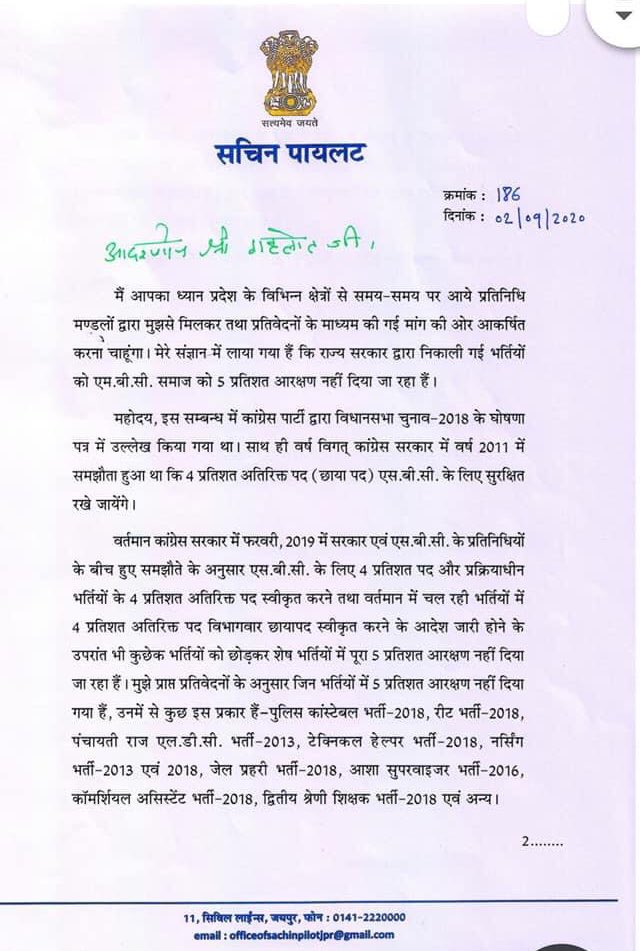 सत्यमेव जयते
सचिन पायलट
क्रमांक : 186
दिनांक : 02/09/2020
आदरणीय श्री गहलोत जी।
मैं आपका ध्यान प्रदेश के विभिन्न क्षेत्रों से समय-समय पर आये प्रतिनिधि
मण्डलों द्वारा मुझसे मिलकर तथा प्रतिवेदनों के माध्यम की गई मांग की ओर आकर्षित
करना चाहूंगा। मेरे संज्ञान में लाया गया हैं कि राज्य सरकार द्वारा निकाली गई भर्तियों
को एम.बी.सी. समाज को 5 प्रतिशत आरक्षण नहीं दिया जा रहा हैं।
महोदय, इस सम्बन्ध में कांग्रेस पार्टी द्वारा विधानसभा चुनाव-2018 के घोषणा
पत्र में उल्लेख किया गया था। साथ ही वर्ष विगत् कांग्रेस सरकार में वर्ष 2011 में
समझौता हुआ था कि 4 प्रतिशत अतिरिक्त पद (छाया पद) एस.बी.सी. के लिए सुरक्षित
रखे जायेंगे।
वर्तमान कांग्रेस सरकार में फरवरी, 2019 में सरकार एवं एस.बी.सी. के प्रतिनिधियों
के बीच हुए समझौते के अनुसार एस.बी.सी. के लिए 4 प्रतिशत पद और प्रक्रियाधीन
भर्तियों के 4 प्रतिशत अतिरिक्त पद स्वीकृत करने तथा वर्तमान में चल रही भर्तियों में
4 प्रतिशत अतिरिक्त पद विभागवार छायापद स्वीकृत करने के आदेश जारी होने के
उपरांत भी कुछेक भर्तियों को छोड़कर शेष भर्तियों में पूरा 5 प्रतिशत आरक्षण नहीं दिया
जा रहा हैं। मुझे प्राप्त प्रतिवेदनों के अनुसार जिन भर्तियों में 5 प्रतिशत आरक्षण नहीं दिया
गया हैं, उनमें से कुछ इस प्रकार हैं-पुलिस कांस्टेबल भर्ती-2018, रीट भर्ती-2018,
पंचायती राज एल.डी.सी. भर्ती-2013, टेक्निकल हेल्पर भर्ती-2018, नर्सिंग
भर्ती-2013 एवं 2018, जेल प्रहरी भर्ती-2018, आशा सुपरवाइजर भर्ती-2016,
कॉमर्शियल असिस्टेंट भर्ती-2018, द्वितीय श्रेणी शिक्षक भर्ती-2018 एवं अन्य।
2........
11, सिविल लाईन्स, जयपुर, फोन : 0141-2220000
email : officeofsachinpilotjpr@gmail.com